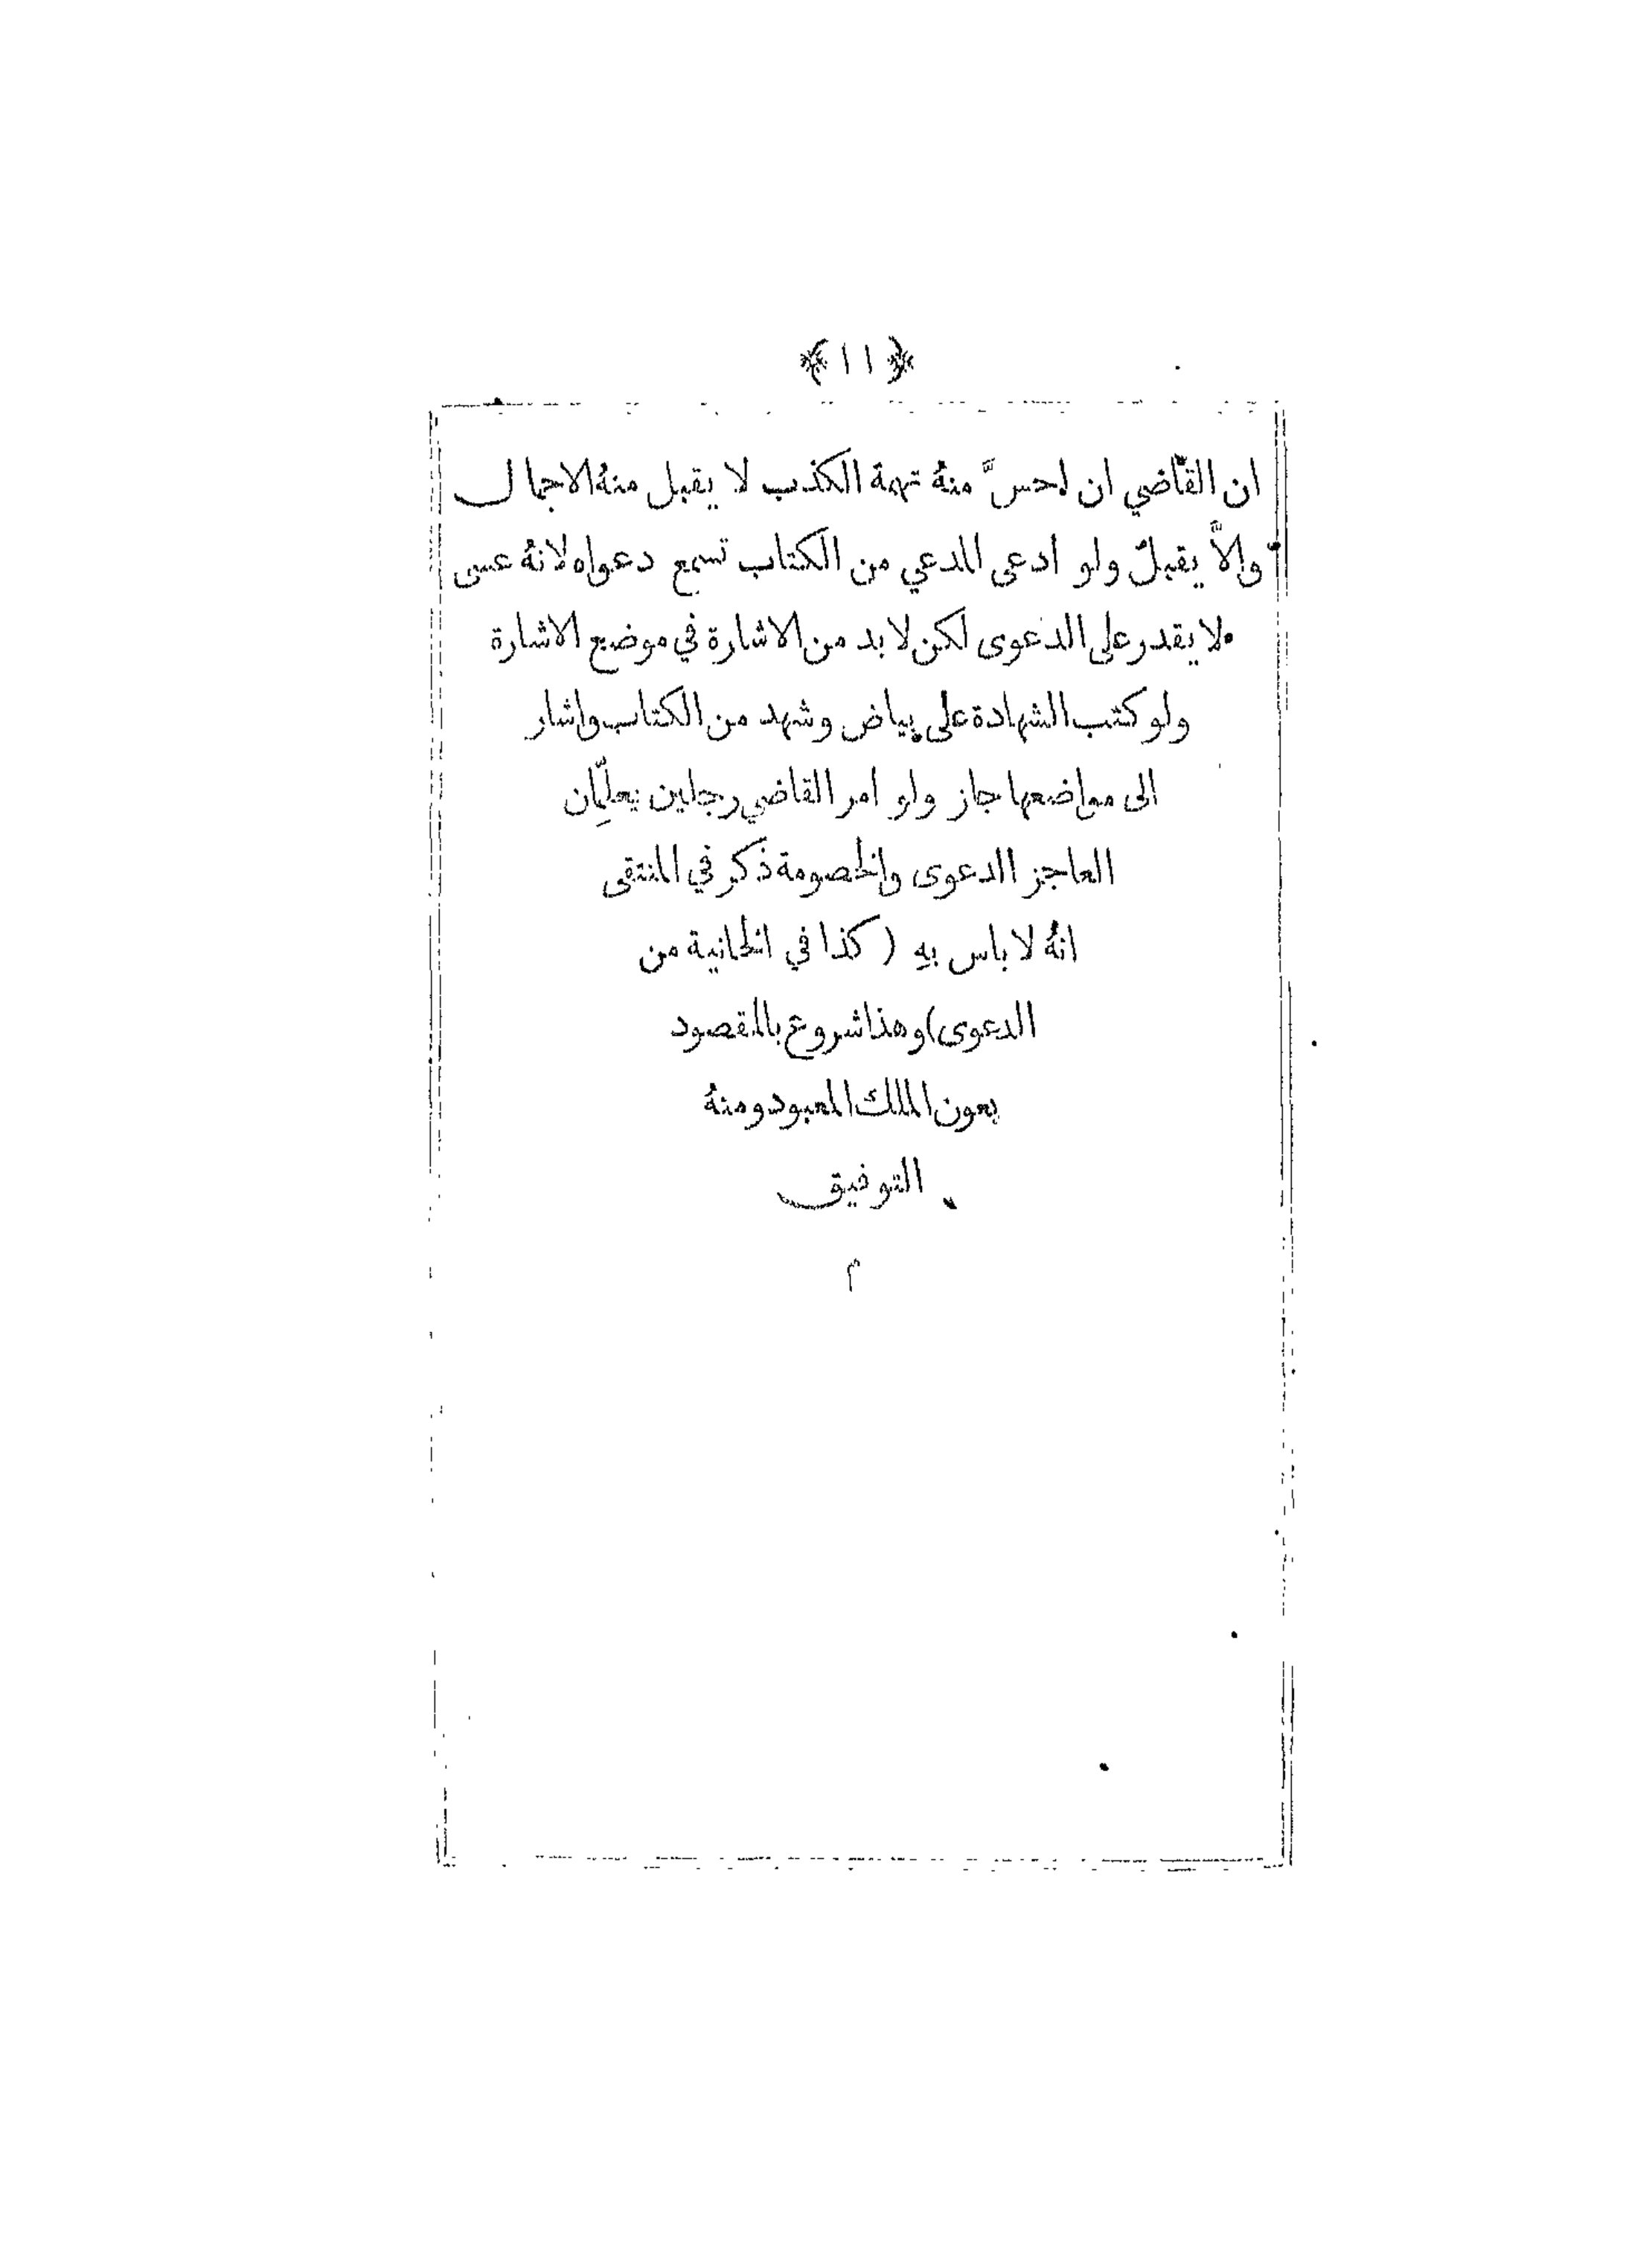 ﴿ ١١ ﴾
ان القاضي ان احسَّ منهُ تهمة الكذب لا يقبل منهُ الاجمال
والاَّ يقبل ولو ادعى المدعي من الكتاب تسمع دعواه لانهُ عسى
لا يقدر على الدعوى لكن لا بد من الاشارة في موضع الاشارة
ولو كتب الشهادة على بياض وشهد من الكتاب واشار
الى مواضعها جاز ولو امر القاضي رجلين يعلِّمان
العاجز الدعوى والخصومة ذكر في المنتقى
انهُ لا باس بهِ ( كذا في الخانية من
الدعوى) وهذا شروع بالمقصود
بعون الملك المعبود ومنهُ
التوفيق
م